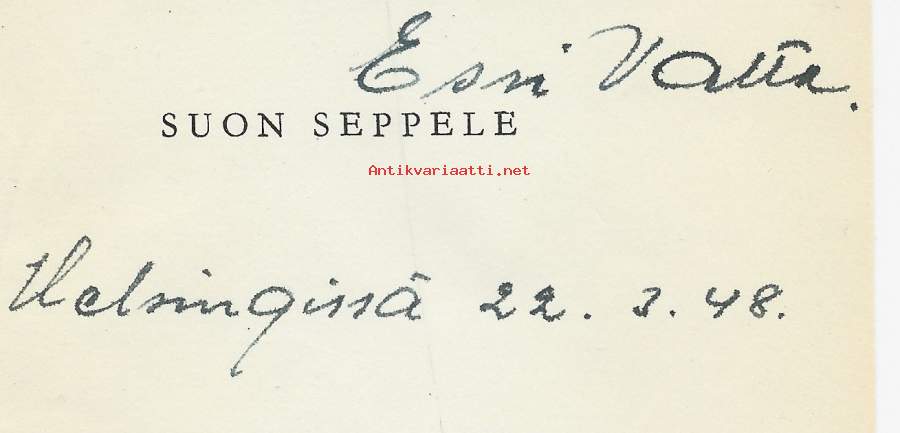 Essi Valta.
SUON SEPPELE
Antikvariaatti.net
Helsingissä 22. 3. 48.